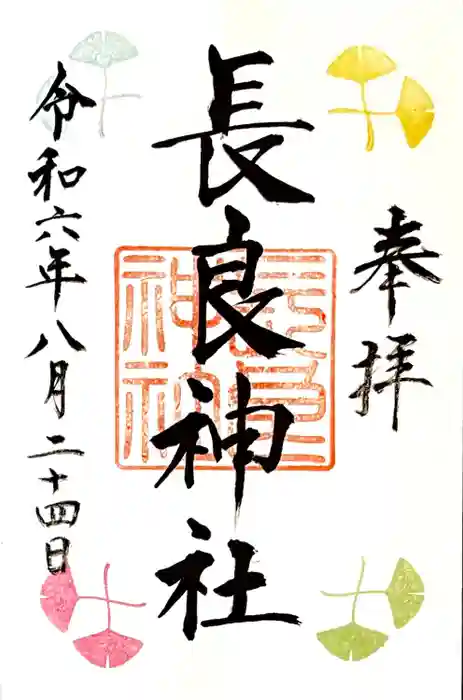 奉拝
長良神社
令和六年八月二十四日